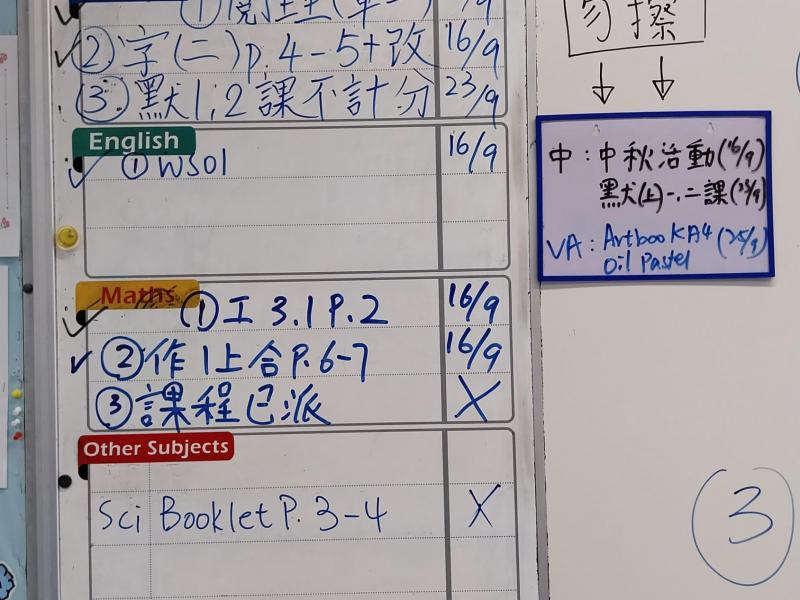 ② 字(二)p.4-5+改 16/9
③ 默1,2課不計分 23/9
English
① WS01 16/9
Maths
① 工 3.1 P.2 16/9
② 作1上合P.6-7 16/9
③ 課程已派 X
Other Subjects
Sci Booklet P. 3-4 X
勿擦
中:中秋活動(16/9)
默(上)一.二課
VA: Artbook A4 (25/9)
Oil Pastel
3